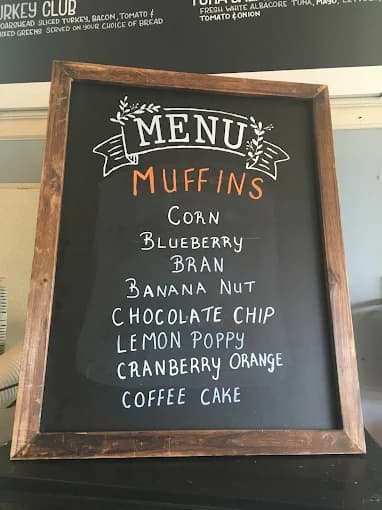 URKEY CLUB
OARSHEAD SLICED TURKEY, BACON, TOMATO &
IXED GREENS SERVED ON YOUR CHOICE OF BREAD
FRESH WHITE ALBACORE TUNA, MAYO,
TOMATO & ONION
MENU
MUFFINS
CORN
BLUEBERRY
BRAN
BANANA NUT
CHOCOLATE CHIP
LEMON POPPY
CRANBERRY ORANGE
COFFEE CAKE